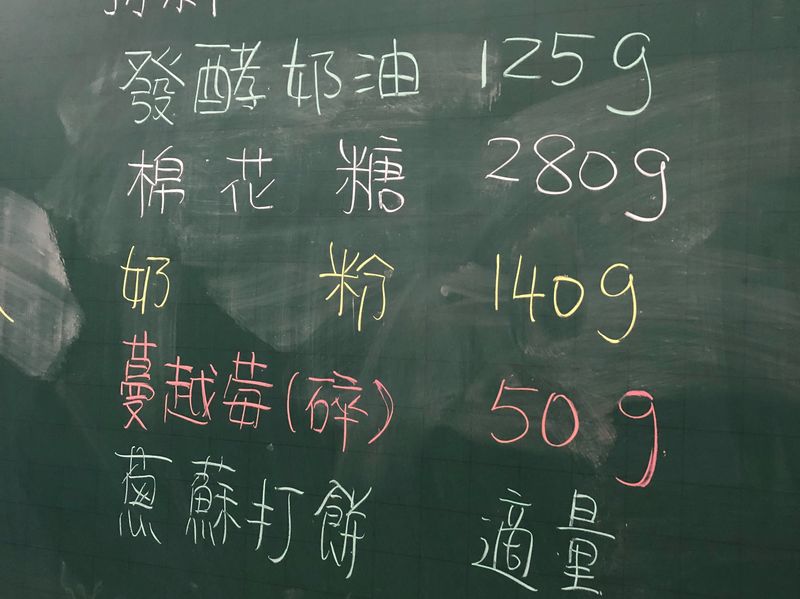 發酵奶油 125g
棉花糖 280g
奶粉 140g
蔓越莓(碎) 50g
蔥蘇打餅 適量